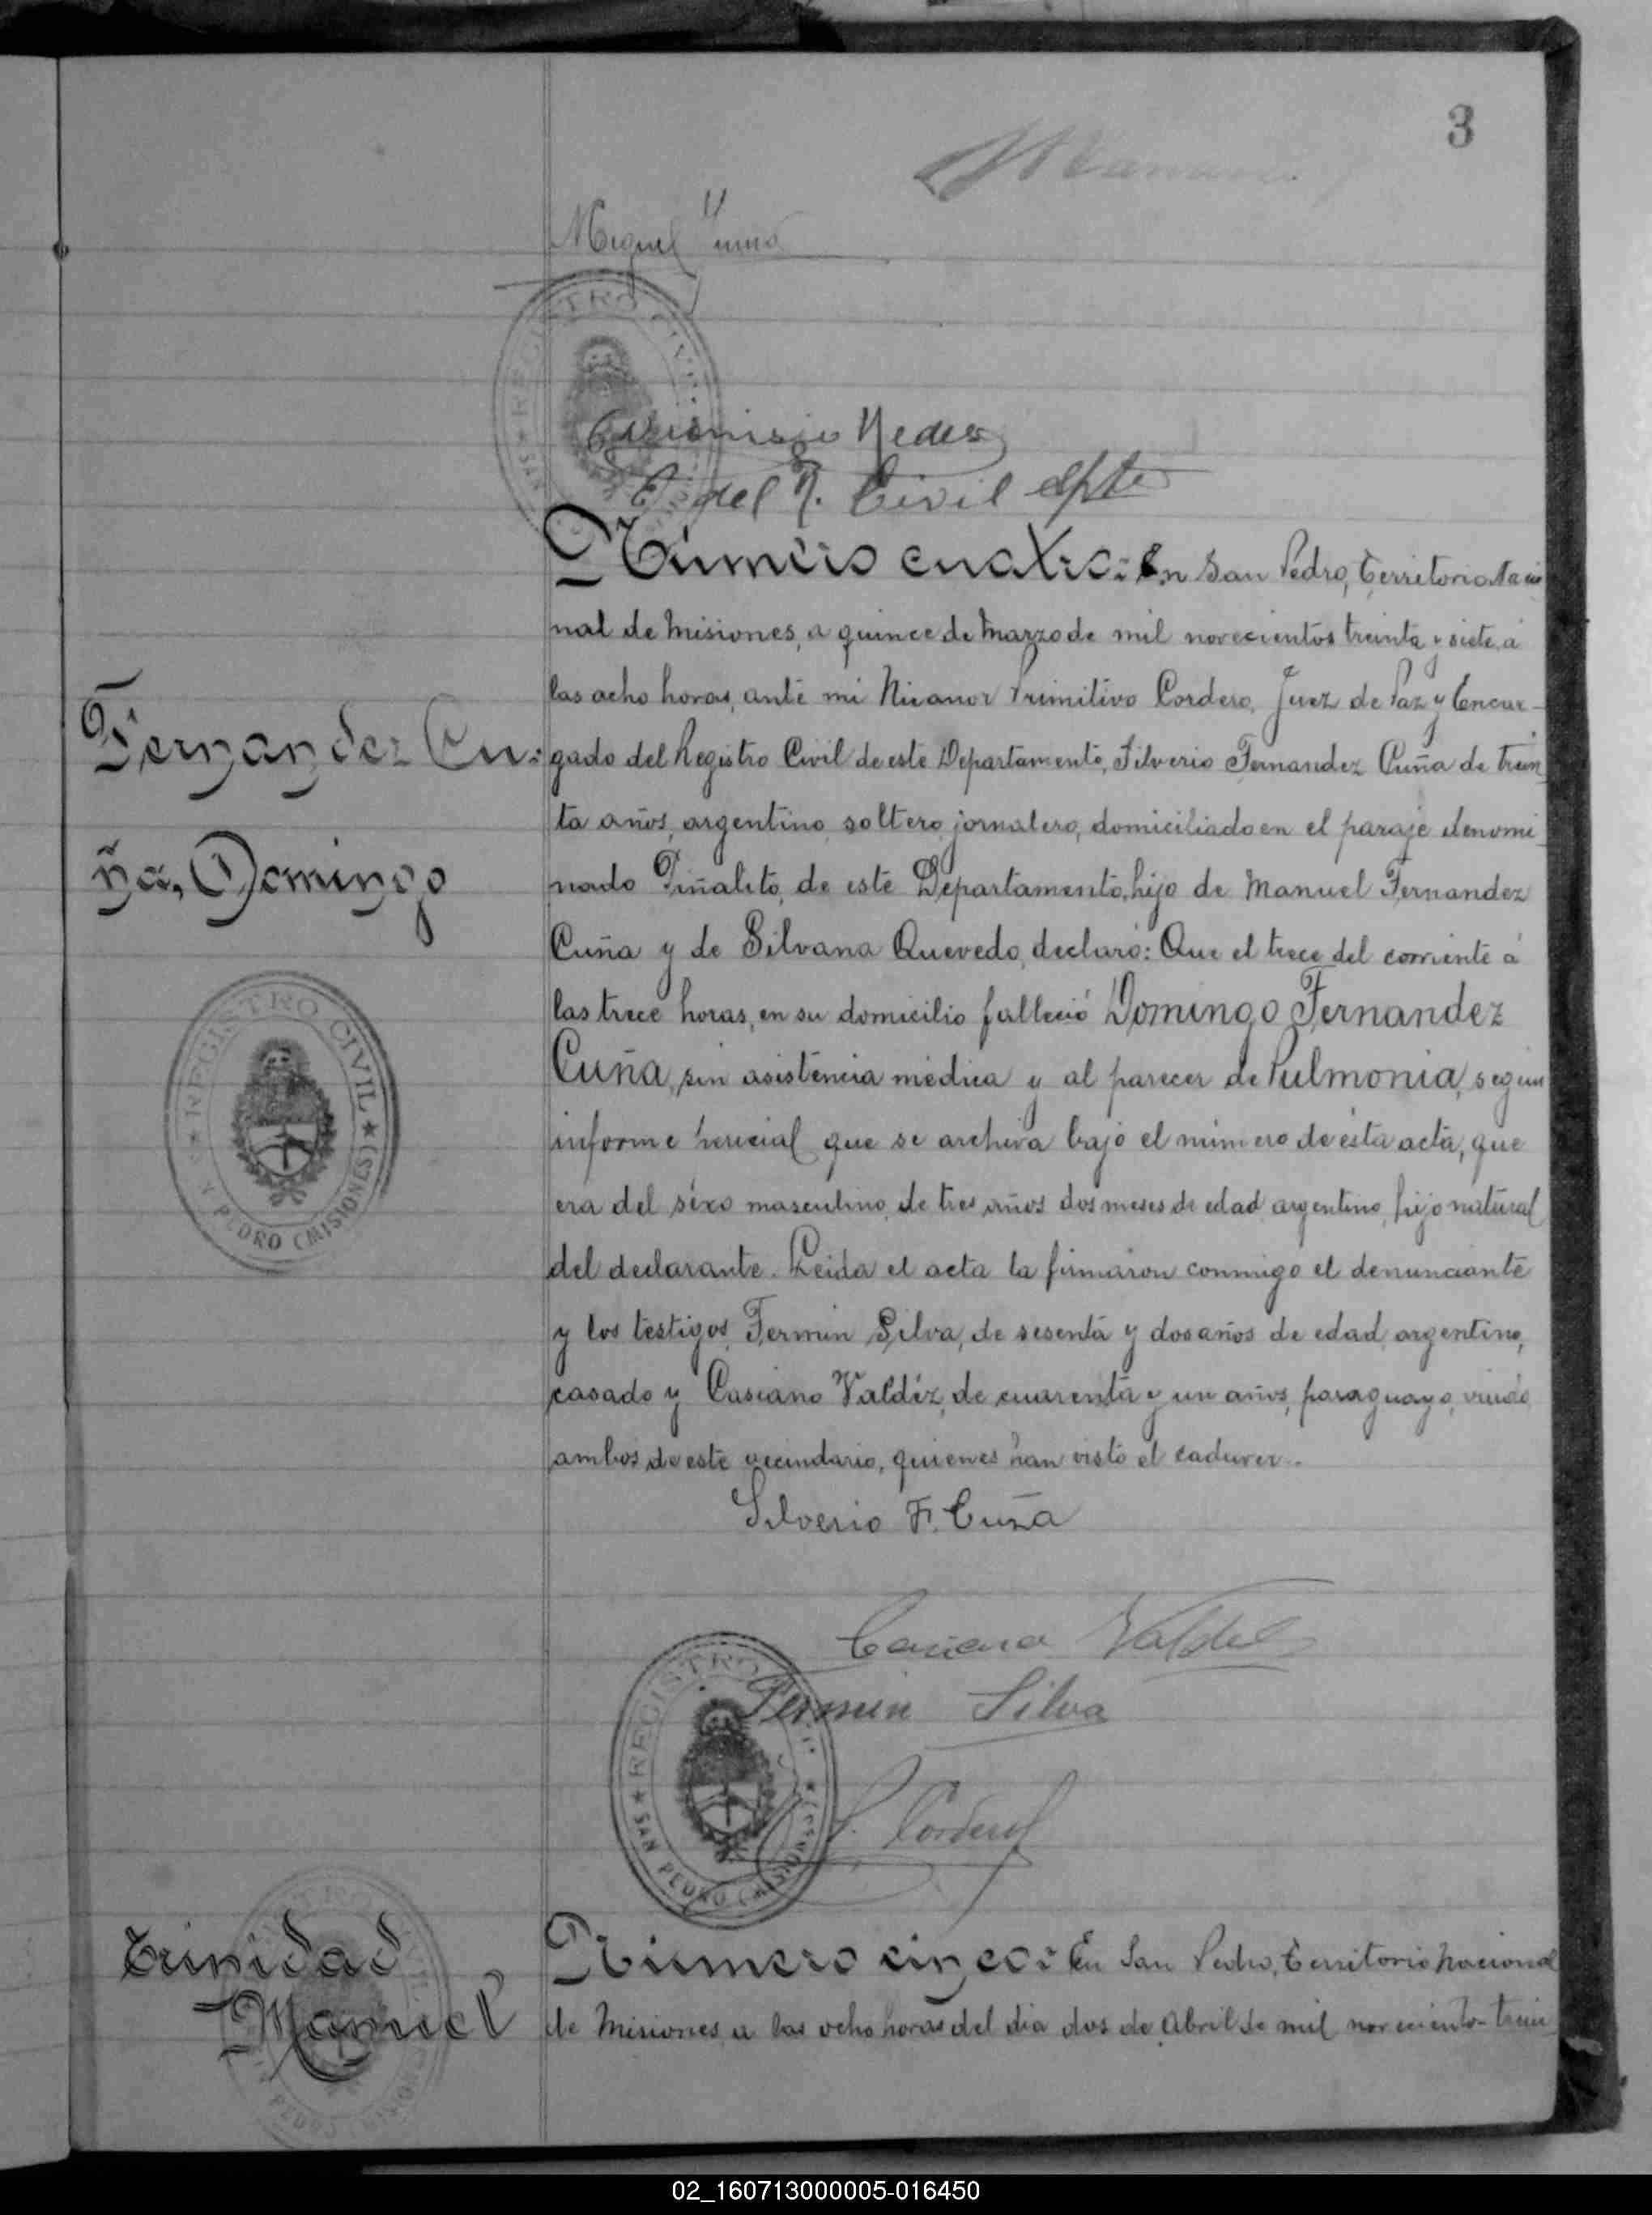 3
Miguel
Dionisio Nedes
E. del R. Civil Spte
Número cuatro: En San Pedro, Territorio Nacio
nal de Misiones, a quince de Marzo de mil novecientos treinta y siete, á
las ocho horas, ante mi Nicanor Primitivo Cordero, Juez de Paz y Encar-
Fernandez Cu-
gado del Registro Civil de este Departamento, Silverio Fernandez Cuña de trein
ta años, argentino, soltero, jornalero, domiciliado en el paraje denomi
ña, Domingo
nado Piñalito, de este Departamento, hijo de Manuel Fernandez
Cuña y de Silvana Quevedo, declaró: Que el trece del corriente á
las trece horas, en su domicilio falleció Domingo Fernandez
Cuña, sin asistencia médica y al parecer de Pulmonia, segun
informe pericial que se archiva bajo el número de ésta acta, que
era del sexo masculino, de tres años dos meses de edad, argentino, hijo natural
del declarante. Leida el acta la firmaron conmigo el denunciante
y los testigos, Fermin Silva, de sesenta y dos años de edad, argentino,
casado y Casiano Valdéz, de cuarenta y un años, paraguayo, viudo,
ambos de este vecindario, quienes han visto el cadaver.
REGISTRO CIVIL
SAN PEDRO (MISIONES)
Silverio F. Cuña
Casiano Valdez
Fermin Silva
REGISTRO
SAN PEDRO (MISIONES)
P. Cordero
Trinidad
Manuel
Número cinco: En San Pedro, Territorio Nacional
de Misiones, a las ocho horas del dia dos de Abril de mil novecientos trein
02_160713000005-016450